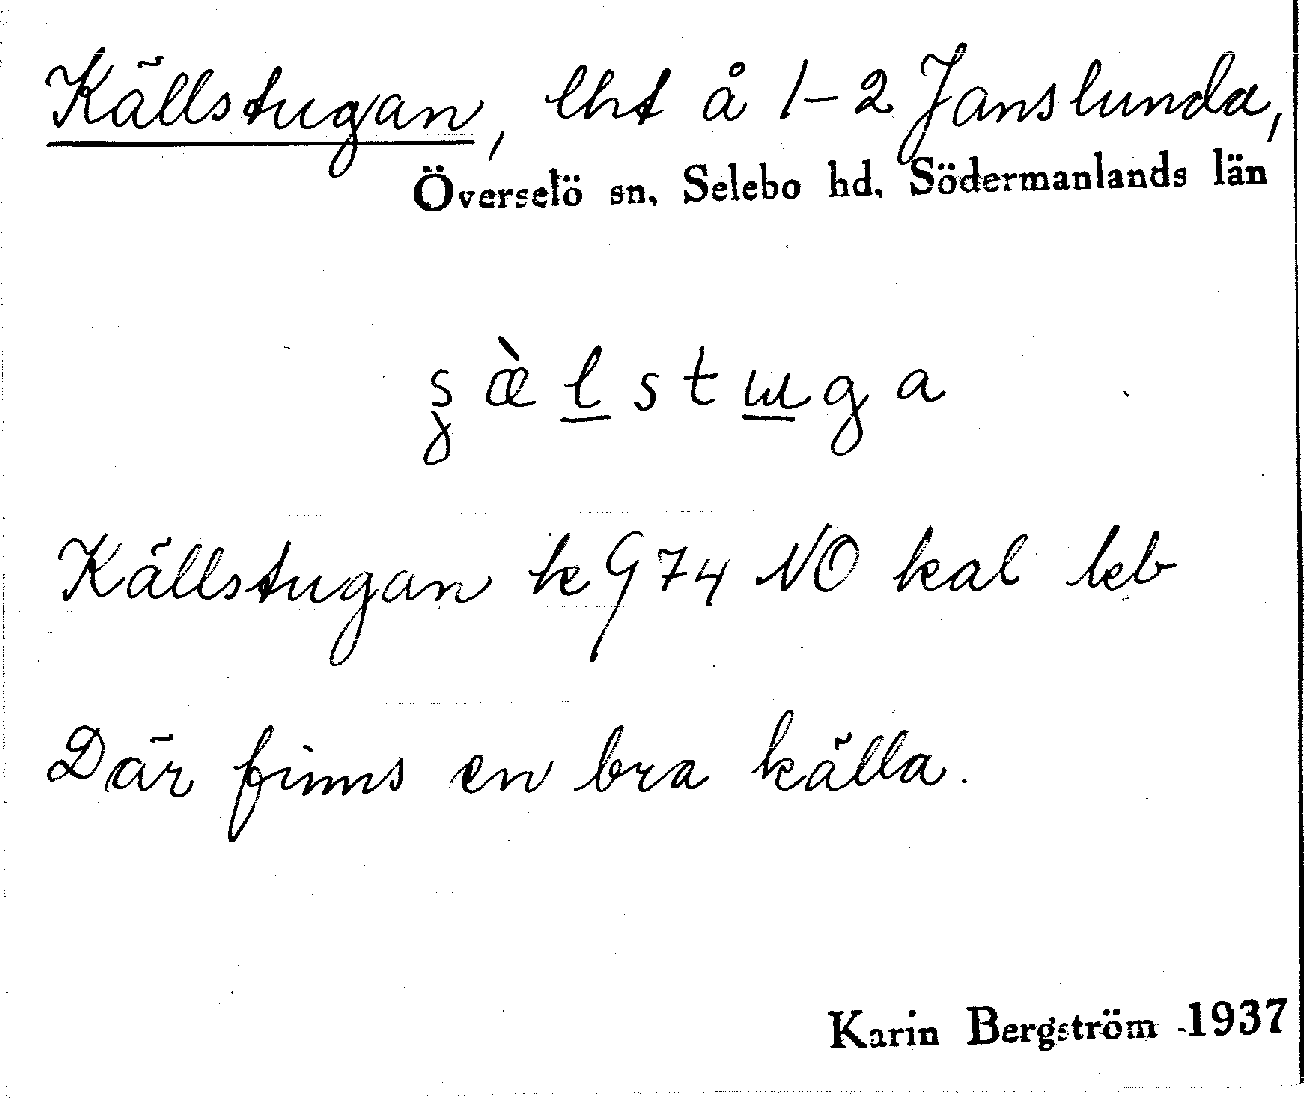 Källstugan, lht å 1-2 Janslunda,
Överselö sn, Selebo hd, Södermanlands län
ʂæ̀l̲stɯ̲ga
Källstugan k G74 NO kal leb
Där finns en bra källa.
Karin Bergström 1937